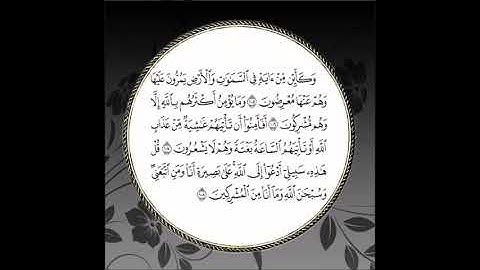 وَكَأَيِّن مِّنْ ءَايَةٍ فِي ٱلسَّمَٰوَٰتِ وَٱلْأَرْضِ يَمُرُّونَ عَلَيْهَا
وَهُمْ عَنْهَا مُعْرِضُونَ ١٠٥ وَمَا يُؤْمِنُ أَكْثَرُهُم بِٱللَّهِ إِلَّا
وَهُم مُّشْرِكُونَ ١٠٦ أَفَأَمِنُوٓا۟ أَن تَأْتِيَهُمْ غَٰشِيَةٌ مِّنْ عَذَابِ
ٱللَّهِ أَوْ تَأْتِيَهُمُ ٱلسَّاعَةُ بَغْتَةً وَهُمْ لَا يَشْعُرُونَ ١٠٧ قُلْ
هَٰذِهِۦ سَبِيلِيٓ أَدْعُوٓا۟ إِلَى ٱللَّهِ عَلَىٰ بَصِيرَةٍ أَنَا۠ وَمَنِ ٱتَّبَعَنِي
وَسُبْحَٰنَ ٱللَّهِ وَمَآ أَنَا۠ مِنَ ٱلْمُشْرِكِينَ ١٠٨